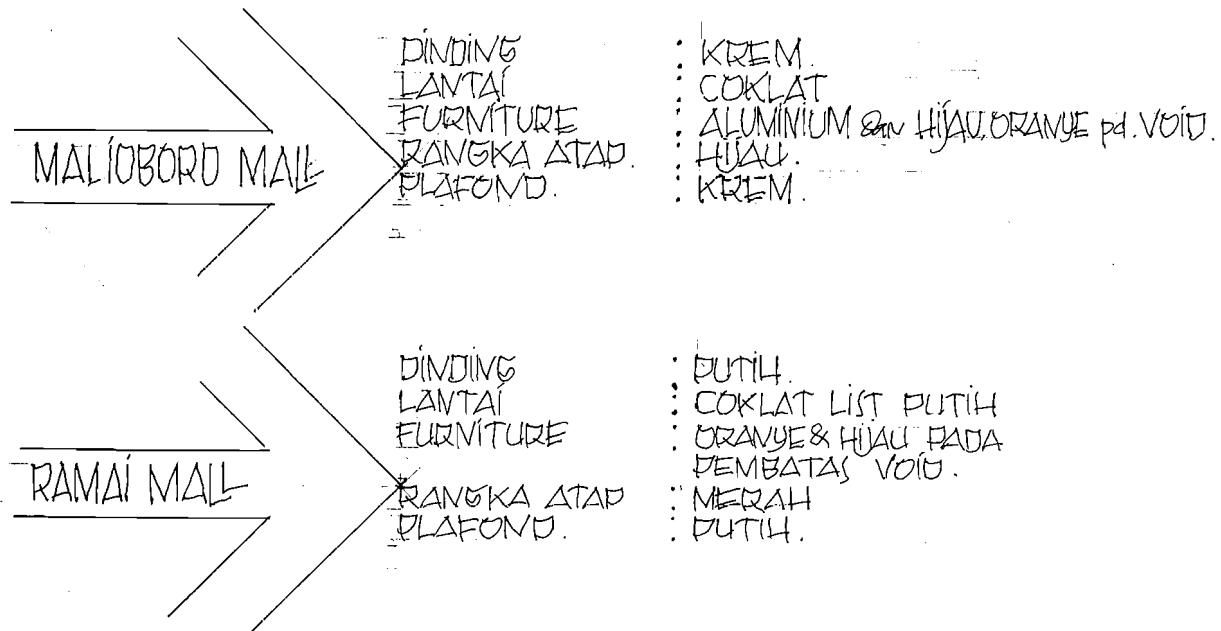 DINDING : KREM.
LANTAI : COKLAT
FURNITURE : ALUMINIUM dgn HIJAU, ORANYE pd. VOID.
RANGKA ATAP. : HIJAU.
PLAFOND. : KREM.
MALIOBORO MALL
DINDING : PUTIH.
LANTAI : COKLAT LIST PUTIH
FURNITURE : ORANYE & HIJAU PADA
PEMBATAS VOID.
RANGKA ATAP : MERAH
PLAFOND. : PUTIH.
RAMAI MALL